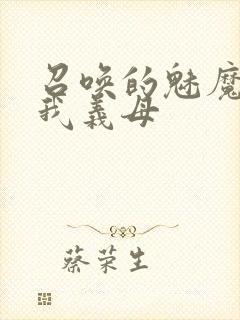 召唤的魅魔
我義母
蔡荣生